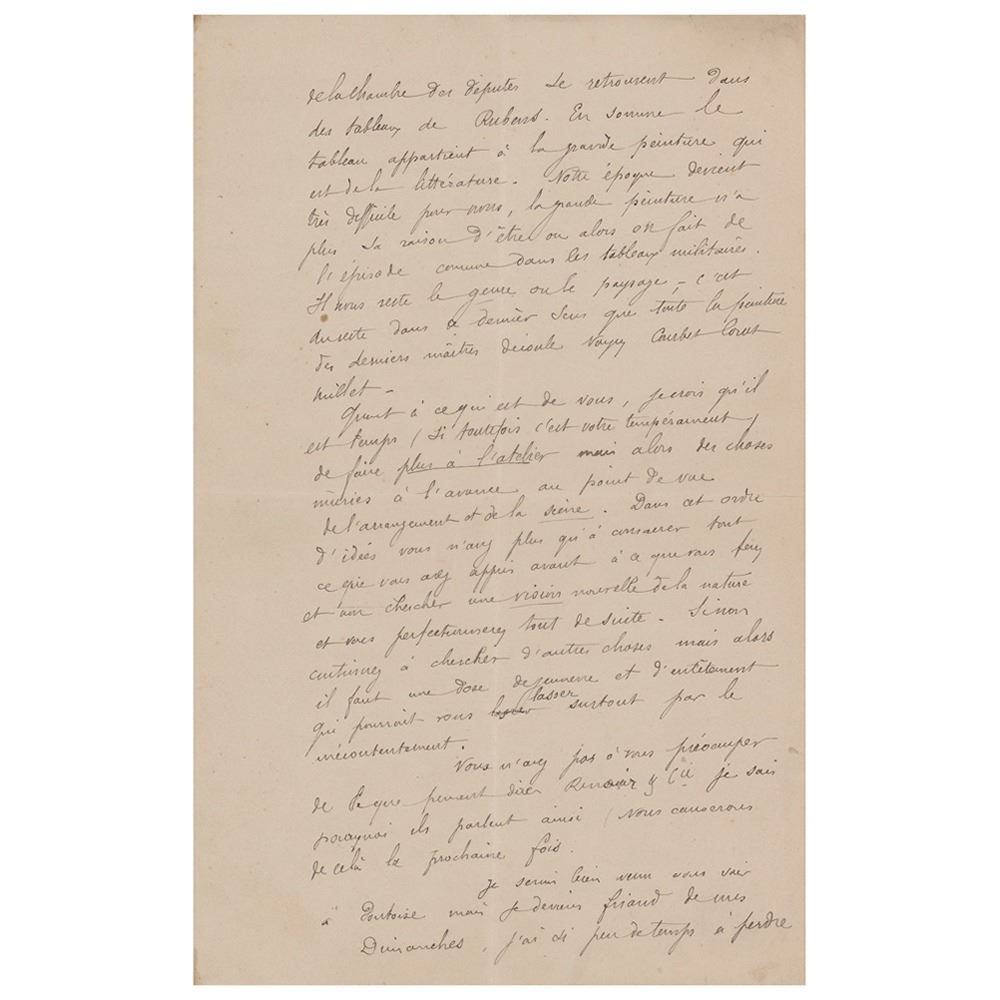 de la Chambre des députés se retrouvent dans
des tableaux de Rubens. En somme le
tableau appartient à la grande peinture qui
est de la littérature. Notre époque devient
très difficile pour nous, la grande peinture n'a
plus sa raison d'être ou alors on fait de
l'épisode comme dans les tableaux militaires.
Il nous reste le genre ou le paysage - c'est
du reste dans ce dernier sens que toute la peinture
des derniers maîtres découle voyez Courbet Corot
Millet -
Quant à ce qui est de vous, je crois qu'il
est temps (si toutefois c'est votre tempérament)
de faire plus à l'atelier mais alors des choses
mûries à l'avance au point de vue
de l'arrangement et de la scène. Dans cet ordre
d'idées vous n'avez plus qu'à consacrer tout
ce que vous avez appris avant à ce que vous ferez
et non chercher une vision nouvelle de la nature
et vous perfectionnerez tout de suite. Sinon
continuez à chercher d'autres choses mais alors
il faut une dose de jeunesse et d'entêtement
qui pourrait vous lasser surtout par le
mécontentement.
Vous n'avez pas à vous préoccuper
de ce que peuvent dire Renoir & Cie je sais
pourquoi ils parlent ainsi (nous causerons
de celà la prochaine fois.
Je serais bien venu vous voir
à Pontoise mais je deviens friand de mes
Dimanches, j'ai si peu de temps à perdre